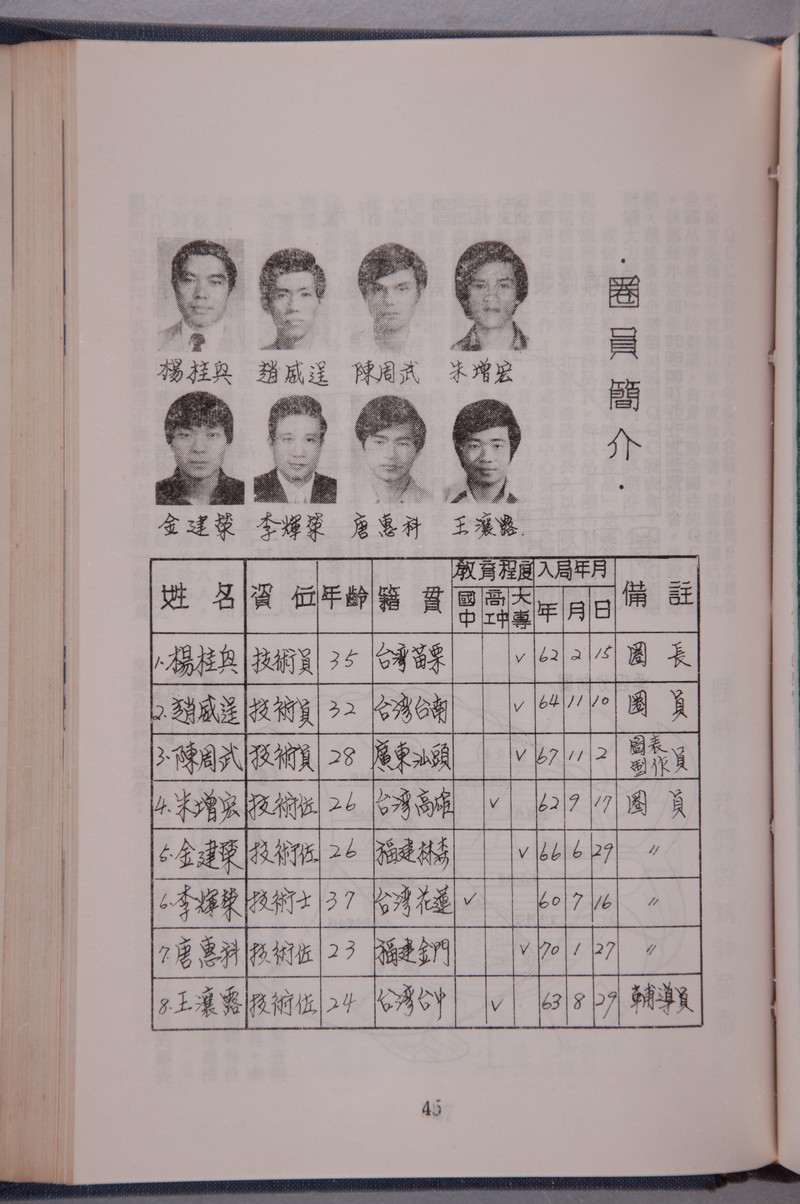 ·圈員簡介·
楊桂與 趙咸逞 陳周武 朱增宏
金建榮 李輝榮 唐惠科 王瀼露
姓名 資位 年齡 籍貫 教育程度 入局年月 備註
國中 高工中 大專 年 月 日
1.楊桂與 技術員 35 台湾苗栗 ✓ 62 2 15 圈長
2.趙咸逞 技術員 32 台湾台南 ✓ 64 11 10 圈員
3.陳周武 技術員 28 廣東汕頭 ✓ 67 11 2 圖表製作員
4.朱增宏 技術佐 26 台湾高雄 ✓ 62 9 17 圈員
5.金建榮 技術佐 26 福建林森 ✓ 66 6 29 〃
6.李輝榮 技術士 37 台湾花蓮 ✓ 60 7 16 〃
7.唐惠科 技術佐 23 福建金門 ✓ 70 1 27 〃
8.王瀼露 技術佐 24 台湾台中 ✓ 63 8 29 輔導員
45